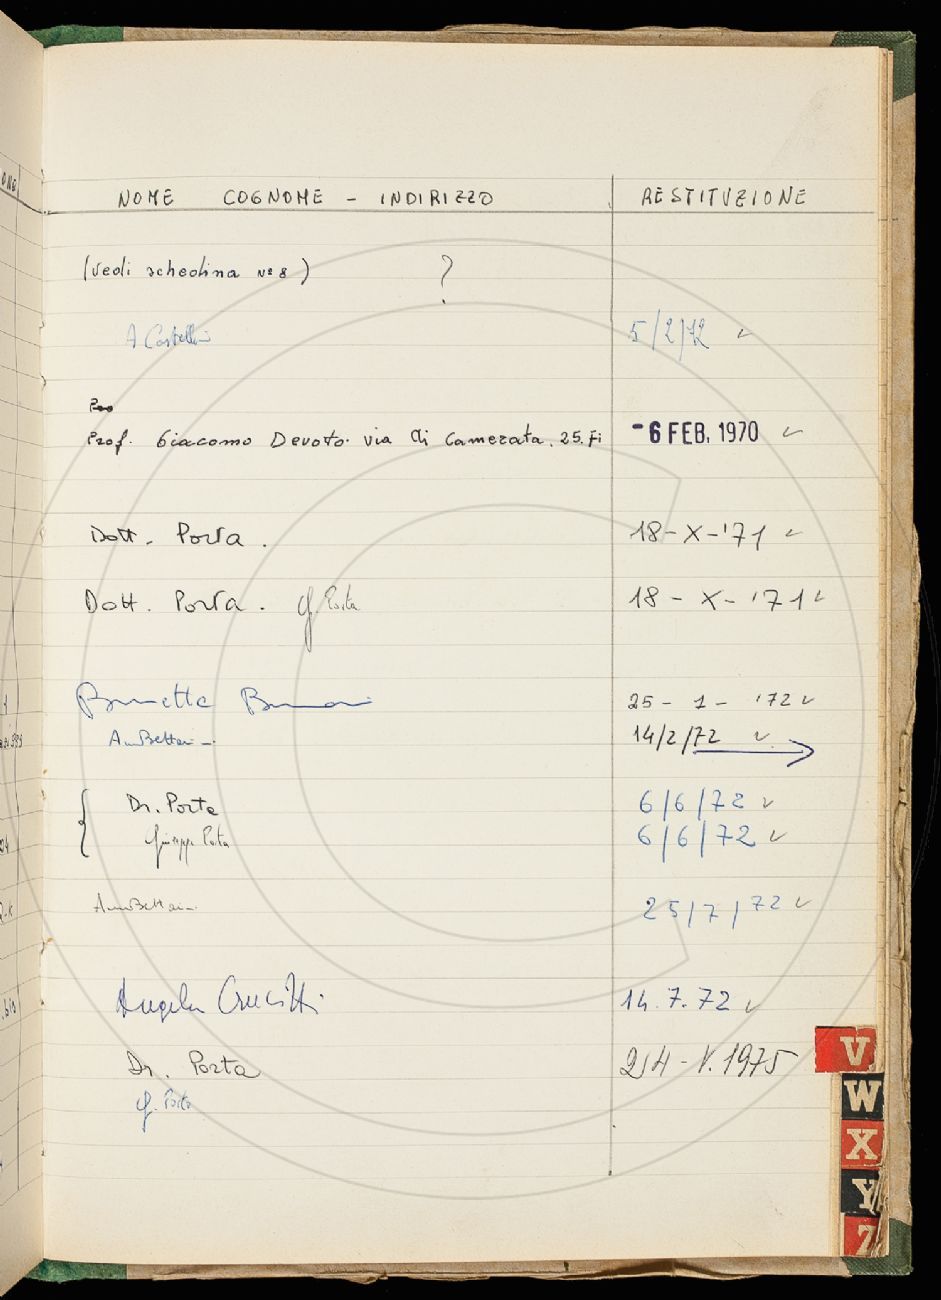 NOME COGNOME - INDIRIZZO RESTITUZIONE
(Vedi schedina nº 8) ?
A Castellini 5/2/72 ✓
Prof. Giacomo Devoto. via di Camerata. 25. Fi - 6 FEB. 1970 ✓
Dott. Porta. 18-X-'71 ✓
Dott. Porta. G. Porta 18 - X - '71 ✓
Brunetta 25 - 1 - '72 ✓
14/2/72 ✓
{ Dr. Porta 6/6/72 ✓
Giuseppe Porta 6/6/72 ✓
25/7/72 ✓
Angela Crucitti 14.7.72 ✓
Dr. Porta 24-V.1975
G. Porta
V
W
X
Y
Z